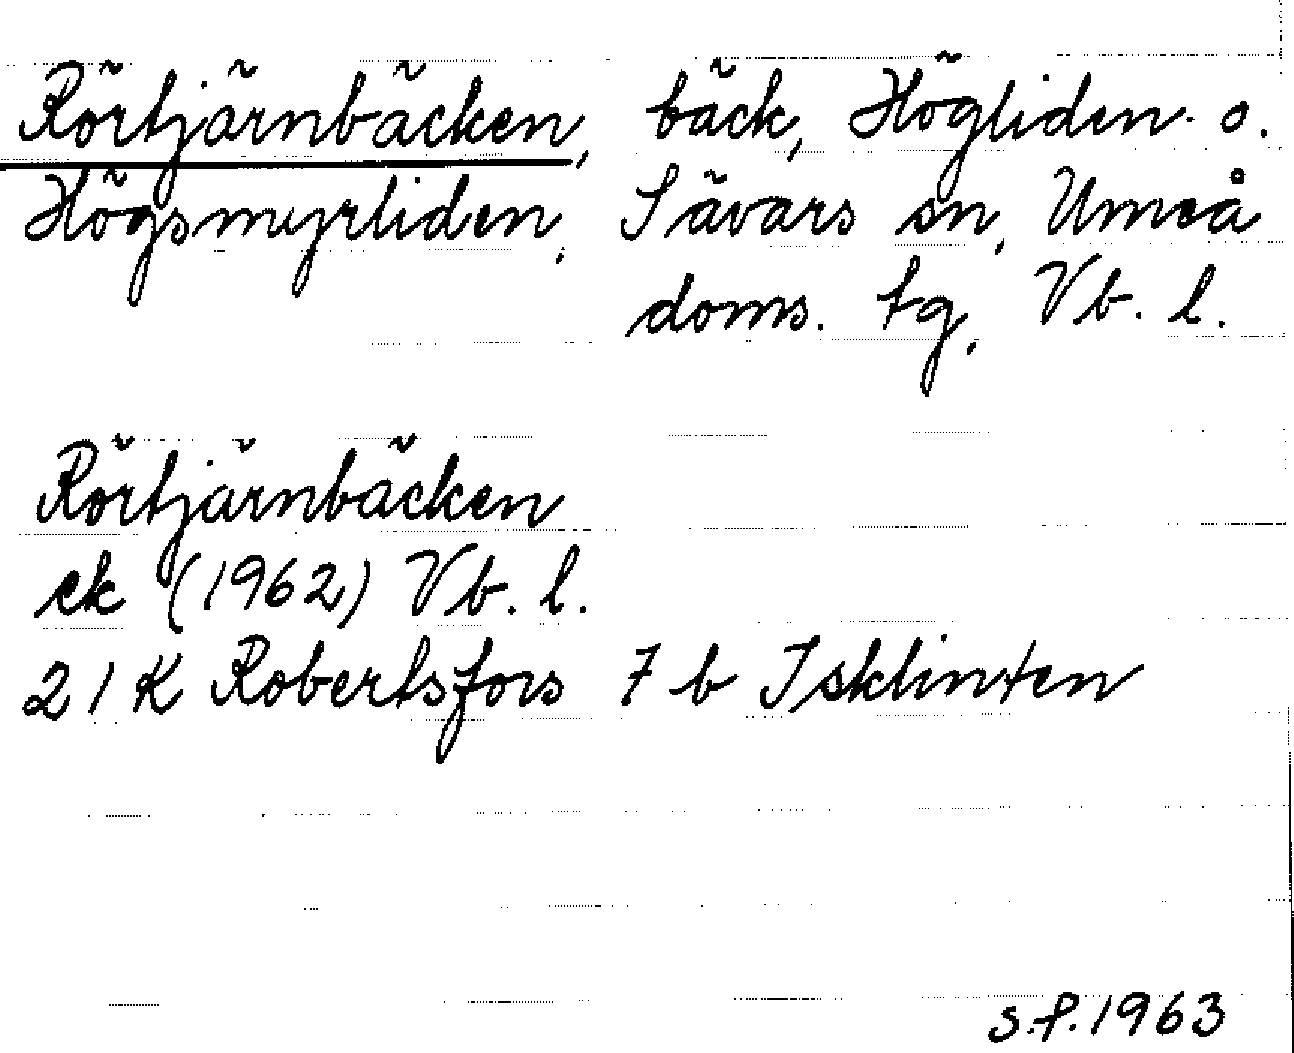 Rörtjärnbäcken, bäck, Högliden o.
Högsmyrliden, Sävars sn, Umeå
doms. tg, Vb. l.
Rörtjärnbäcken
ek (1962) Vb. l.
21 K Robertsfors 7 b Isklinten
s.f. 1963